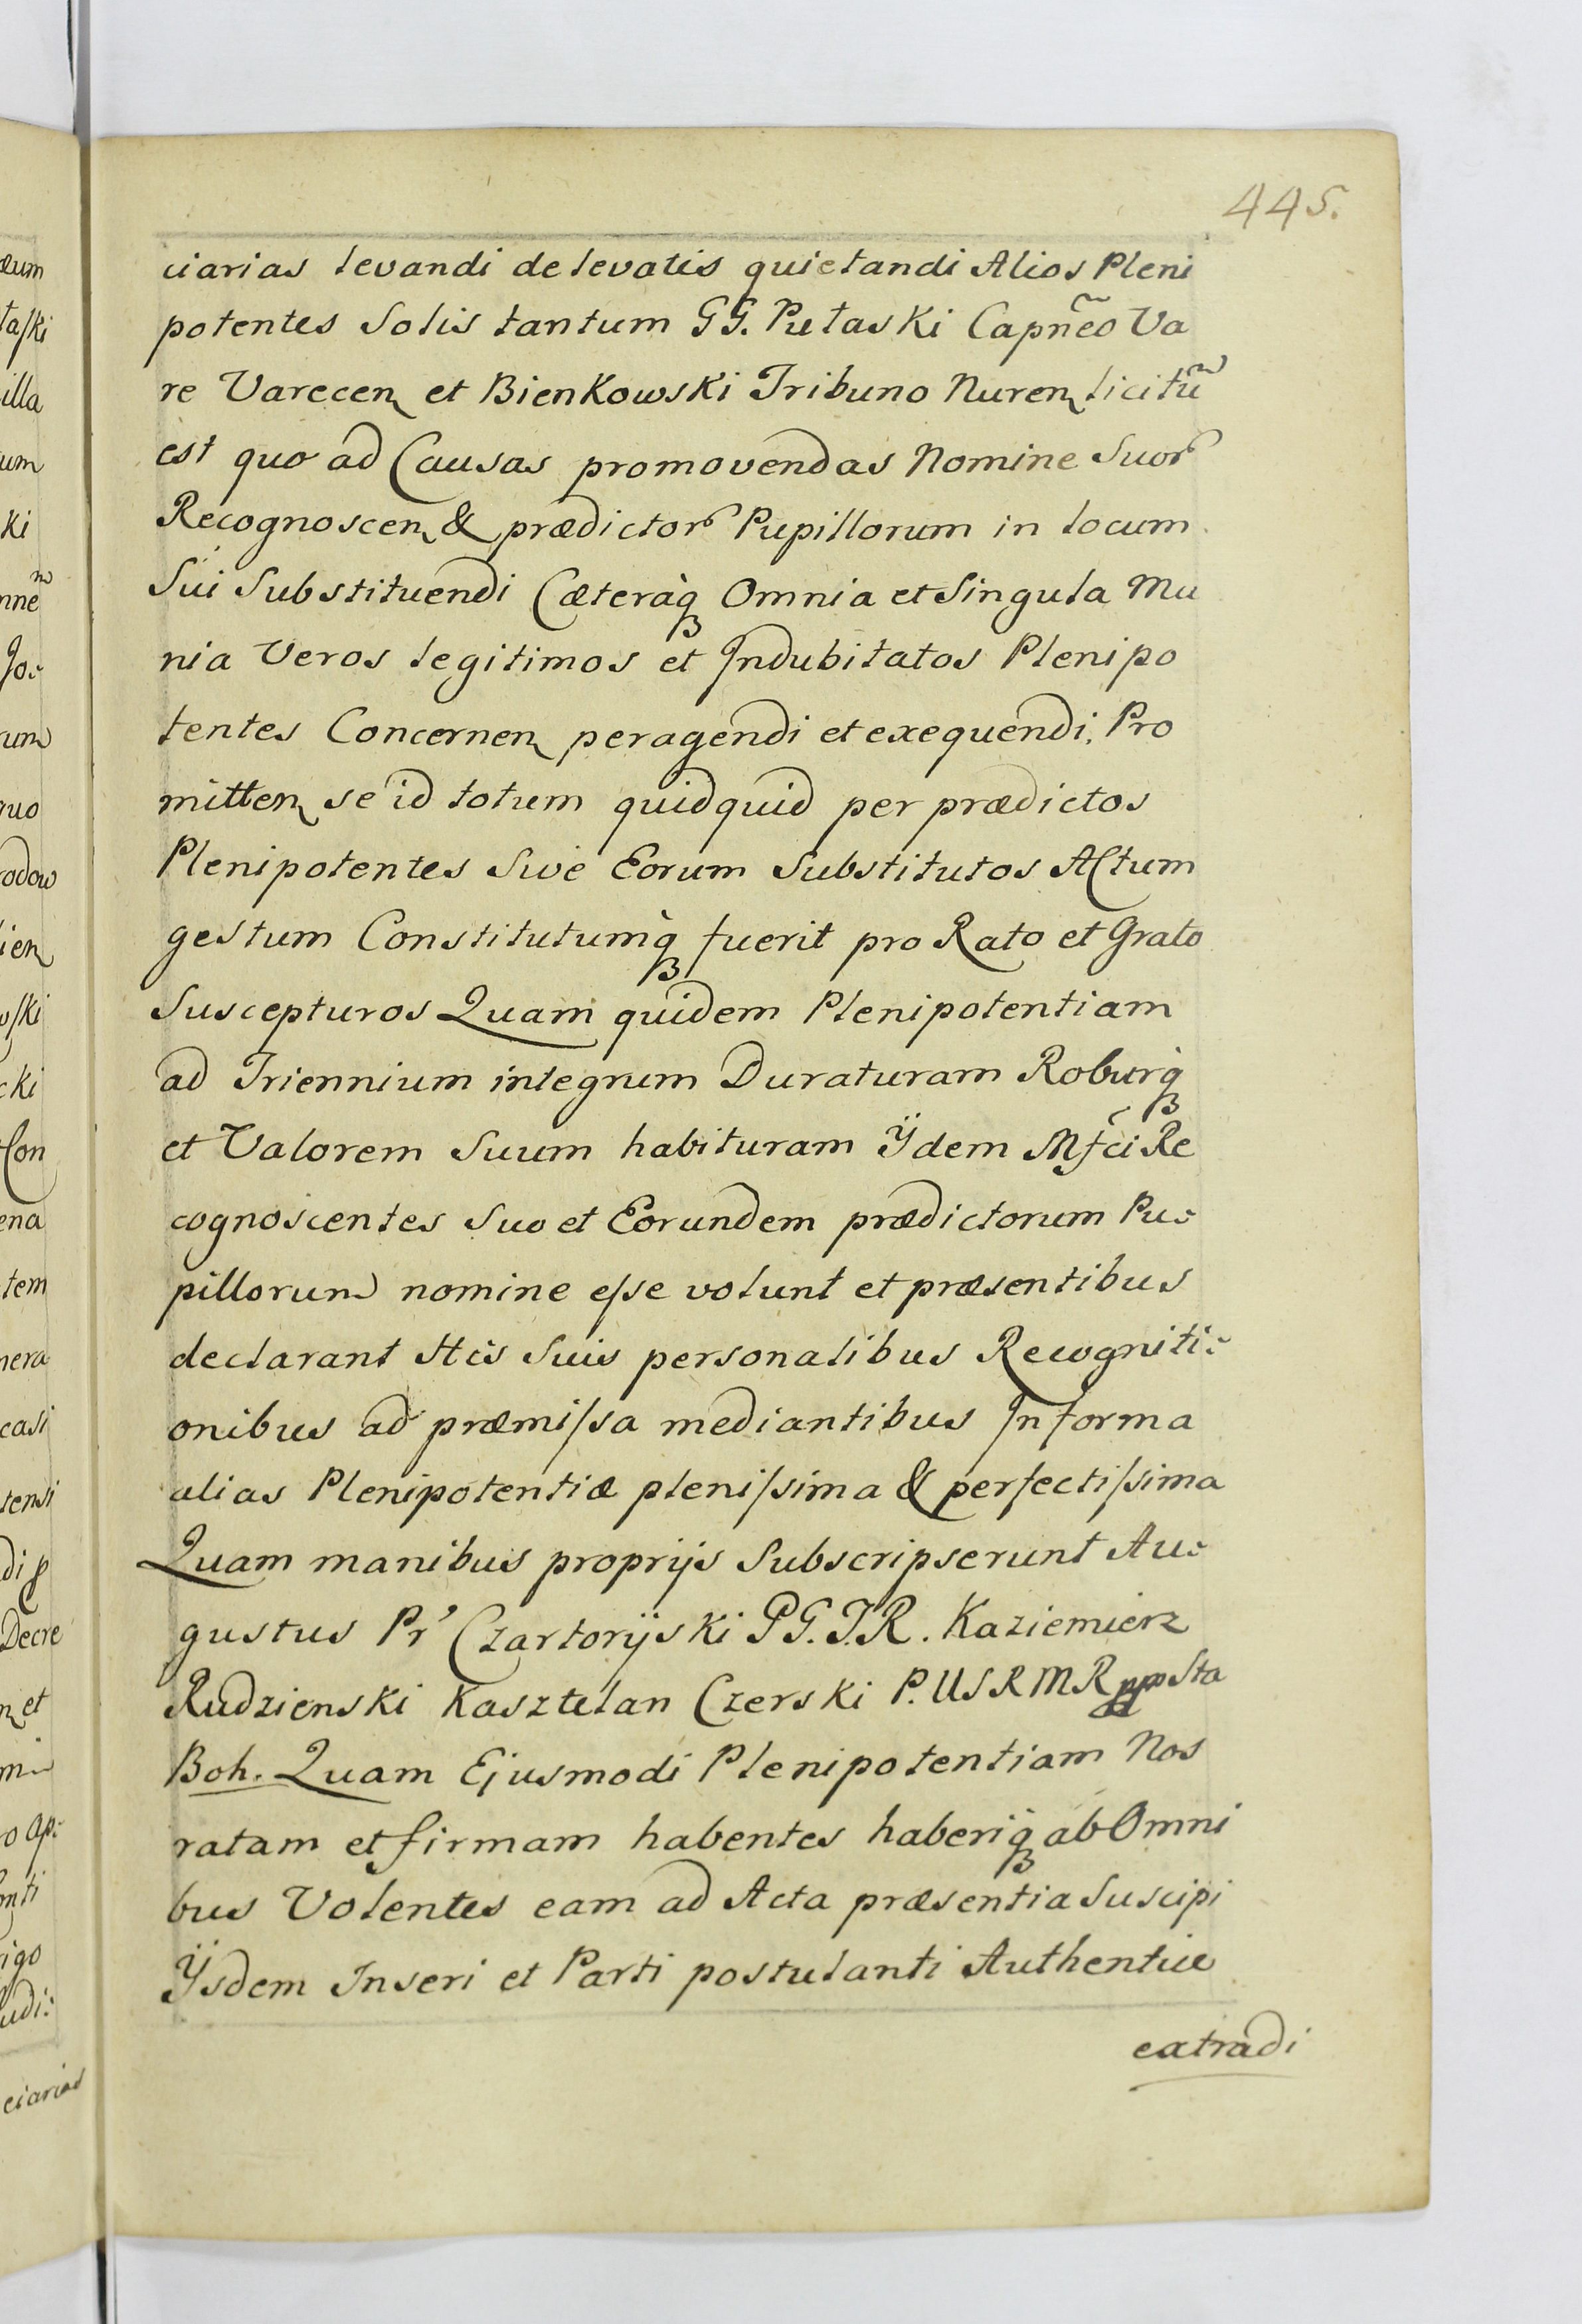 445.
ciarias levandi de levatis quietandi Alios Pleni
potentes Solis tantum GG. Putaski Capñeo Va
re Varecen et Bienkowski Tribuno Nuren licitũ
est quo ad Causas promovendas Nomine Suor
Recognoscen & prædictor Pupillorum in locum
Sui Substituendi Cæteràq Omnia et Singula Mu
nia Veros legitimos et Indubitatos Plenipo
tentes Concernen peragendi et exequendi, Pro
mitten se id totum quidquid per prædictos
Plenipotentes Sive Eorum Substitutos Actum
gestum Constitutumq̀ fuerit pro Rato et Grato
Suscepturos Quam quidem Plenipotentiam
ad Triennium integrum Duraturam Roburq̀
et Valorem Suum habituram Ÿdem Mfci Re
cognoscentes Suo et Eorundem prædictorum Pu-
pillorum nomine eſse volunt et præsentibus
declarant His Suis personalibus Recogniti-
onibus ad præmiſsa mediantibus In forma
alias Plenipotentiæ pleniſsima & perfectiſsima
Quam manibus proprijs Subscripserunt Au-
gustus Pr Czartoryski PG.J.R. Kaziemierz
Rudzienski Kasztelan Czerski P. USRMR Sta
Boh. Quam Ejusmodi Plenipotentiam Nos
ratam et firmam habentes haberiq̀ ab Omni
bus Volentes eam ad Acta præsentia Suscipi
Ÿsdem Inseri et Parti postulanti Authentice
extradi
æum
taſki
illa
um
ki
Jo-
rum
quo
rodow
ien
wſki
cki
Con
ena
tem
nera
casi
tensi
Decre
et
igo
udi:
ciarias